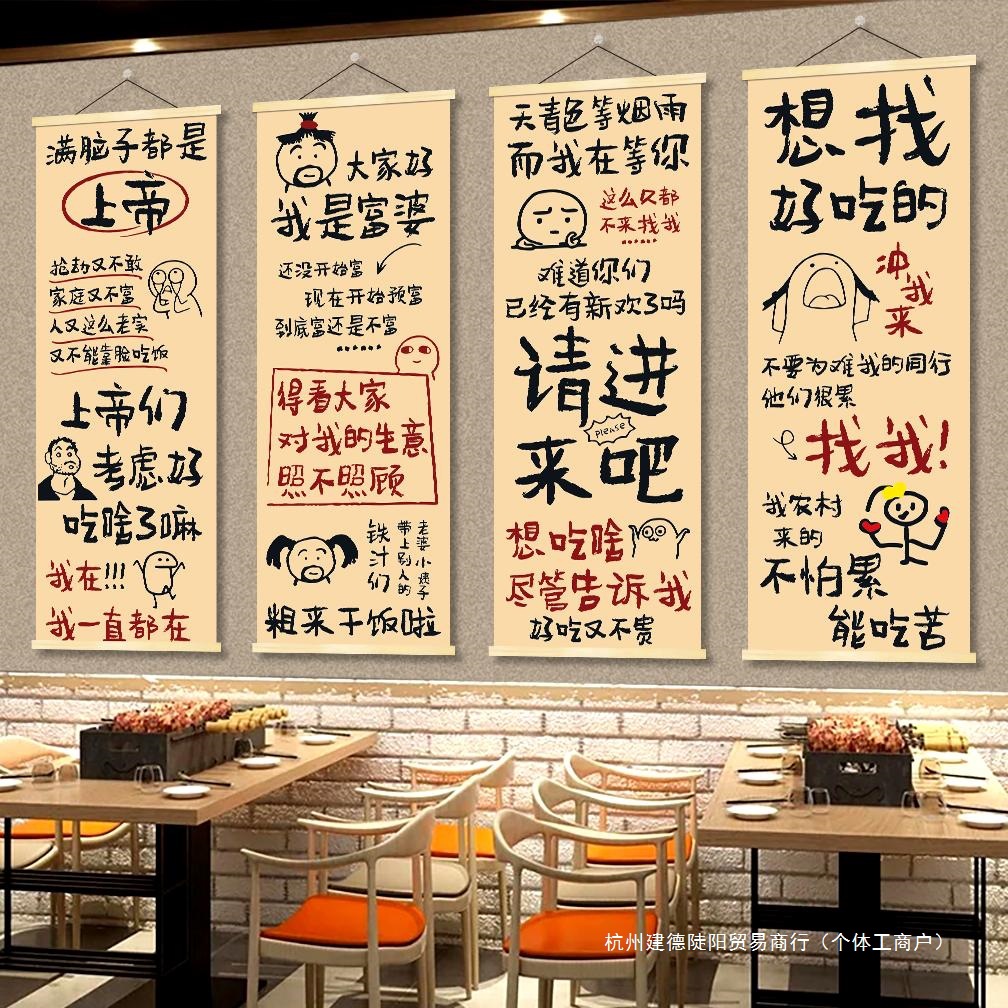 满脑子都是
上帝
抢劫又不敢
家庭又不富
人又这么老实
又不能靠脸吃饭
上帝们
考虑好
吃啥了嘛
我在!!!
我一直都在
大家好
我是富婆
还没开始富
现在开始预富
到底富还是不富
••••••
得看大家
对我的生意
照不照顾
铁汁们
带上别人的
老婆小姨子
粗来干饭啦
天青色等烟雨
而我在等你
这么久都
不来找我
••••••
难道你们
已经有新欢了吗
请进
please
来吧
想吃啥
尽管告诉我
好吃又不贵
想找
好吃的
冲我来
不要为难我的同行
他们很累
找我!
我农村
来的
不怕累
能吃苦
杭州建德陡阳贸易商行（个体工商户）